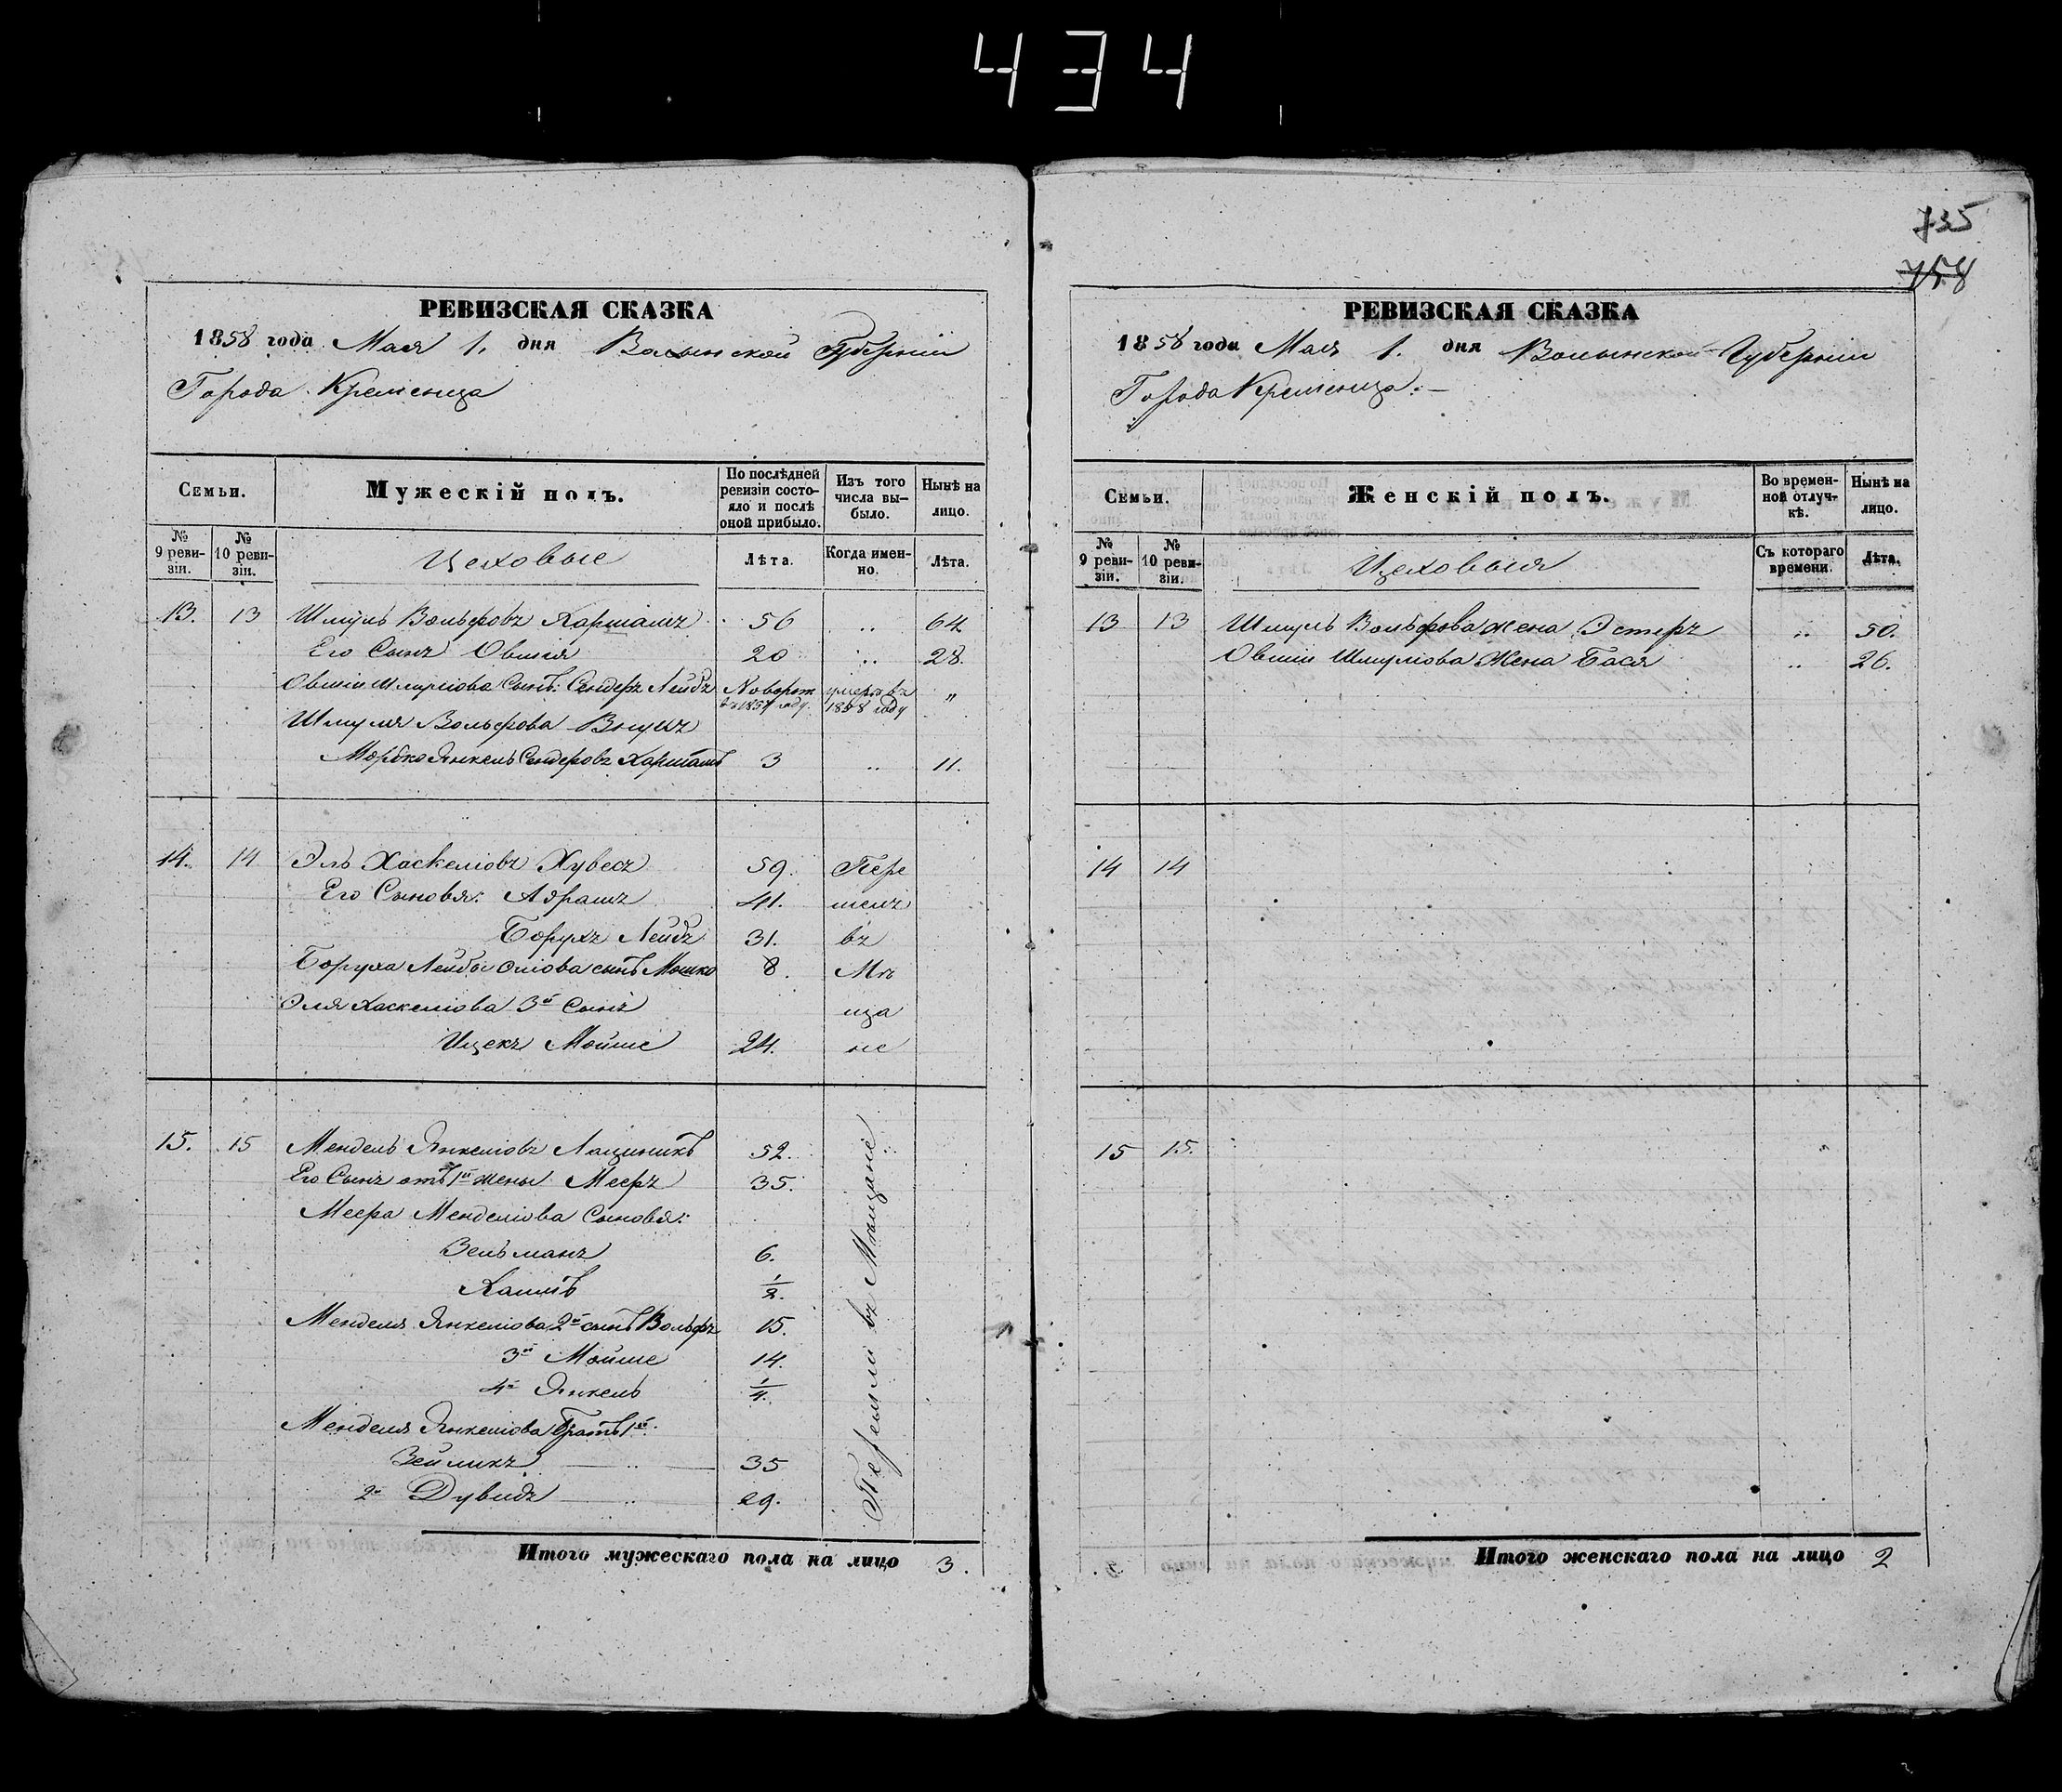 434
РЕВИЗСКАЯ СКАЗКА
1858 года Мая 1. дня Волынской Губерніи
Города Кременца
Семьи.
Мужескій полъ.
По послѣдней ревизіи состояло и послѣ оной прибыло.
Изъ того числа выбыло.
Нынѣ на лицо.
№ 9 ревизіи.
№ 10 ревизіи.
Цеховые
Лѣта.
Когда именно.
Лѣта.
13. 13 Шмуль Вольфовъ Харшамъ 56 .. 64
Его Сынъ Овшія 20 .. 28.
Овшіи Шмуліова Сынъ: Сендеръ Лейбъ Новорож въ 1857 году. умеръ въ 1858 году "
Шмуля Вольфова Внукъ
Мордко Янкель Сендеровъ Харшамъ 3 .. 11.
14. 14 Эль Хаскеліовъ Хувесъ 59. Пере
Его Сыновя: Абрамъ 41. шелъ
Борухъ Лейбъ 31. въ
Боруха Лейбы Эліова сынъ Мошко 8. Мѣ
Эля Хаскеліова 3й Сынъ ща
Ицекъ Мойше 24. не
15. 15 Мендель Янкеліовъ Лацникъ 52.
Его Сынъ отъ 1й жены Мееръ 35.
Меера Менделіова Сыновя:
Зельманъ 6.
Хаимъ 1/2.
Менделя Янкеліова 2й сынъ Вольфъ 15.
3й Мойше 14.
4й Янкель 1/4.
Менделя Янкеліова Братъ 1й.
Зейликъ .. 35
2й Дувидъ .. 29.
Перешли въ Мѣщане
Итого мужескаго пола на лицо 3.
735
758
РЕВИЗСКАЯ СКАЗКА
1858 года Мая 1. дня Волынской Губерніи
Города Кременца.
Семьи.
Женскій полъ.
Во временной отлучкѣ.
Нынѣ на лицо.
№ 9 ревизіи.
№ 10 ревизіи.
Цеховыя
Съ котораго времени.
Лѣта.
13 13 Шмуль Вольфова жена Эстеръ .. 50.
Овшіи Шмуліова Жена Бася .. 26.
14 14
15 15.
Итого женскаго пола на лицо 2